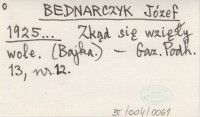 BEDNARCZYK Józef
1925... Zkąd się wzięły
wole. (Bajka.) — Gaz. Podh.
13, nr. 12.
BJ/004/0061